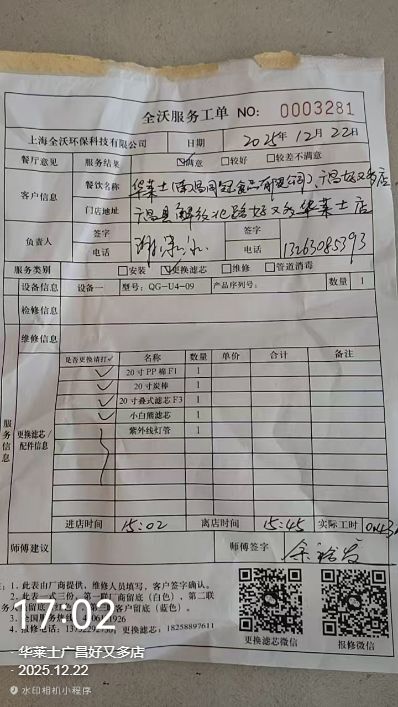 全沃服务工单 NO: 0003281
上海全沃环保科技有限公司 日期 2025年12月22日
餐厅意见 服务结果 ☑满意 □较好 □较差不满意
客户信息 餐饮名称 华莱士(南昌同冠食品有限公司)、广昌好又多店
门店地址 广昌县解放北路好又多华莱士店
负责人 签字 签字
电话 电话 13263085393
服务类别 □安装 ☑更换滤芯 □维修 □管道消毒
设备信息 设备一 型号: QG-U4-09 产品序列号: 数量 1
检修信息
维修信息
服务信息 更换滤芯/配件信息
是否更换请打✓ 名称 数量 单价 合计 备注
✓ 20寸PP棉F1 1
✓ 20寸炭棒 1
✓ 20寸叠式滤芯F3 1
✓ 小白熊滤芯 1
紫外线灯管 1
进店时间 15:02 离店时间 15:45 实际工时
师傅建议 师傅签字
1. 此表由厂商提供, 维修人员填写, 客户签字确认。
2. 此表一式三份, 第一联厂商留底(白色), 第二联
客户留底(蓝色)。
4. 报修电话: 更换滤芯: 18258897611
更换滤芯微信 报修微信
17:02
华莱士广昌好又多店
2025.12.22
水印相机小程序